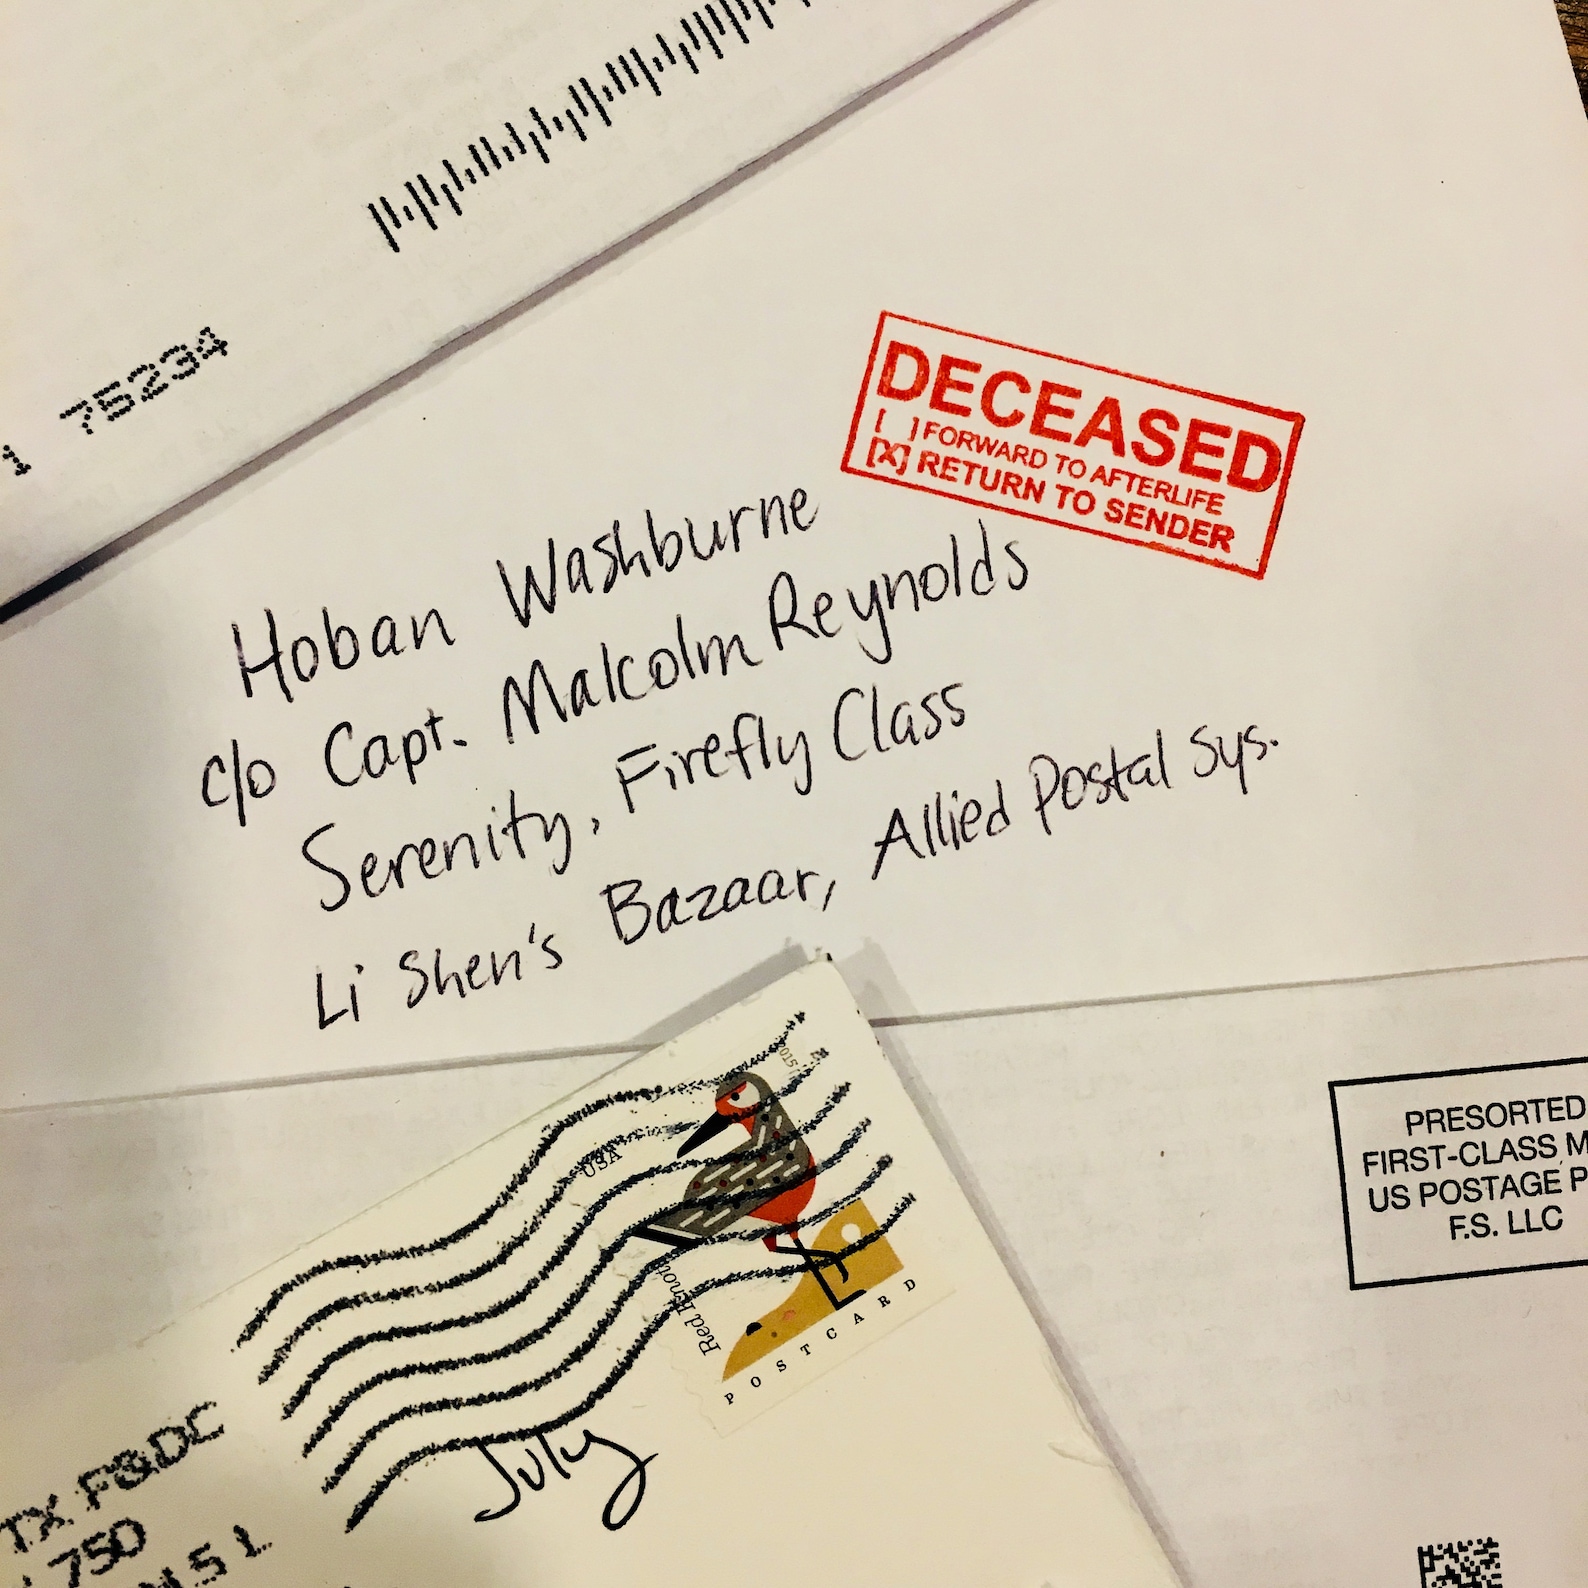 1 75234
DECEASED
[ ] FORWARD TO AFTERLIFE
[X] RETURN TO SENDER
Hoban Washburne
c/o Capt. Malcolm Reynolds
Serenity, Firefly Class
Li Shen's Bazaar, Allied Postal Sys.
USA
Red Knot
POSTCARD
PRESORTED
FIRST-CLASS M
US POSTAGE P
F.S. LLC
July
TX P&DC
750
5 L